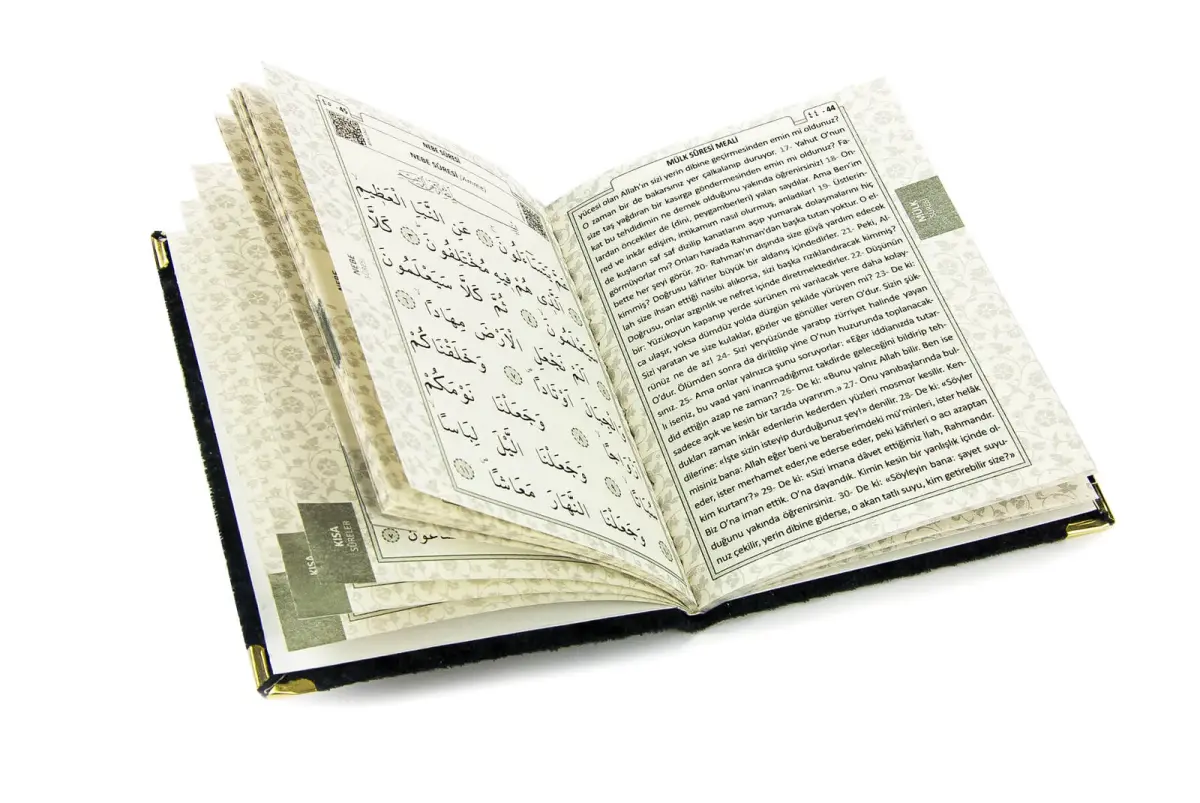 ٤٤ - 44
MÜLK SÛRESİ MEALİ
yücesi olan Allah'ın sizi yerin dibine geçirmesinden emin mi oldunuz?
O zaman bir de bakarsınız yer çalkalanıp duruyor. 17- Yahut O'nun
size taş yağdıran bir kasırga göndermesinden emin mi oldunuz? Fa-
kat bu tehdidimin ne demek olduğunu yakında öğrenirsiniz! 18- On-
lardan öncekiler de (dini, peygamberleri) yalan saydılar. Ama Ben'im
red ve inkâr edişim, intikamım nasıl olurmuş, anladılar! 19- Üstlerin-
de kuşların saf saf dizilip kanatlarını açıp yumarak dolaşmalarını hiç
görmüyorlar mı? Onları havada Rahman'dan başka tutan yoktur. O el-
bette her şeyi görür. 20- Rahman'ın dışında size gûyâ yardım edecek
kimmiş? Doğrusu kâfirler büyük bir aldanış içindedirler. 21- Peki, Al-
lah size ihsan ettiği nasibi alıkorsa, sizi başka rızıklandıracak kimmiş?
Doğrusu, onlar azgınlık ve nefret içinde diretmektedirler. 22- Düşünün
bir: Yüzükoyun kapanıp yerde sürünen mi varılacak yere daha kolay-
ca ulaşır, yoksa dümdüz yolda düzgün şekilde yürüyen mi? 23- De ki:
Sizi yaratan ve size kulaklar, gözler ve gönüller veren O'dur. Sizin şük-
rünüz ne de az! 24- Sizi yeryüzünde yaratıp zürriyet halinde yayan
O'dur. Ölümden sonra da diriltilip yine O'nun huzurunda toplanacak-
sınız. 25- Ama onlar yalnızca şunu soruyorlar: «Eğer iddianızda tutar-
lı iseniz, bu vaad yani inanmadığımız takdirde geleceğini bildirip teh-
did ettiğin azap ne zaman? 26- De ki: «Bunu yalnız Allah bilir. Ben ise
sadece açık ve kesin bir tarzda uyarırım.» 27- Onu yanıbaşlarında bul-
dukları zaman inkâr edenlerin kederden yüzleri mosmor kesilir. Ken-
dilerine: «İşte sizin isteyip durduğunuz şey!» denilir. 28- De ki: «Söyler
misiniz bana: Allah eğer beni ve beraberimdeki mü'minleri, ister helâk
eder, ister merhamet eder,ne ederse eder, peki kâfirleri o acı azaptan
kim kurtarır?» 29- De ki: «Sizi imana dâvet ettiğimiz ilah, Rahmandır.
Biz O'na iman ettik. O'na dayandık. Kimin kesin bir yanlışlık içinde ol-
duğunu yakında öğrenirsiniz. 30- De ki: «Söyleyin bana: şayet suyu-
nuz çekilir, yerin dibine giderse, o akan tatlı suyu, kim getirebilir size?»
MÜLK
SÛRESİ
٤٥ - 45
NEBE SÛRESİ
NEBE SÛRESİ (Amme)
عَمَّ يَتَسَاءَلُونَ ﴿١﴾ عَنِ النَّبَإِ الْعَظِيمِ
﴿٢﴾ الَّذِي هُمْ فِيهِ مُخْتَلِفُونَ ﴿٣﴾ كَلَّا
سَيَعْلَمُونَ ﴿٤﴾ ثُمَّ كَلَّا سَيَعْلَمُونَ
﴿٥﴾ أَلَمْ نَجْعَلِ الْأَرْضَ مِهَادًا ﴿٦﴾
وَالْجِبَالَ أَوْتَادًا ﴿٧﴾ وَخَلَقْنَاكُمْ
أَزْوَاجًا ﴿٨﴾ وَجَعَلْنَا نَوْمَكُمْ
سُبَاتًا ﴿٩﴾ وَجَعَلْنَا اللَّيْلَ لِبَاسًا
﴿١٠﴾ وَجَعَلْنَا النَّهَارَ مَعَاشًا
NEBE
KISA
SÛRELER
KISA